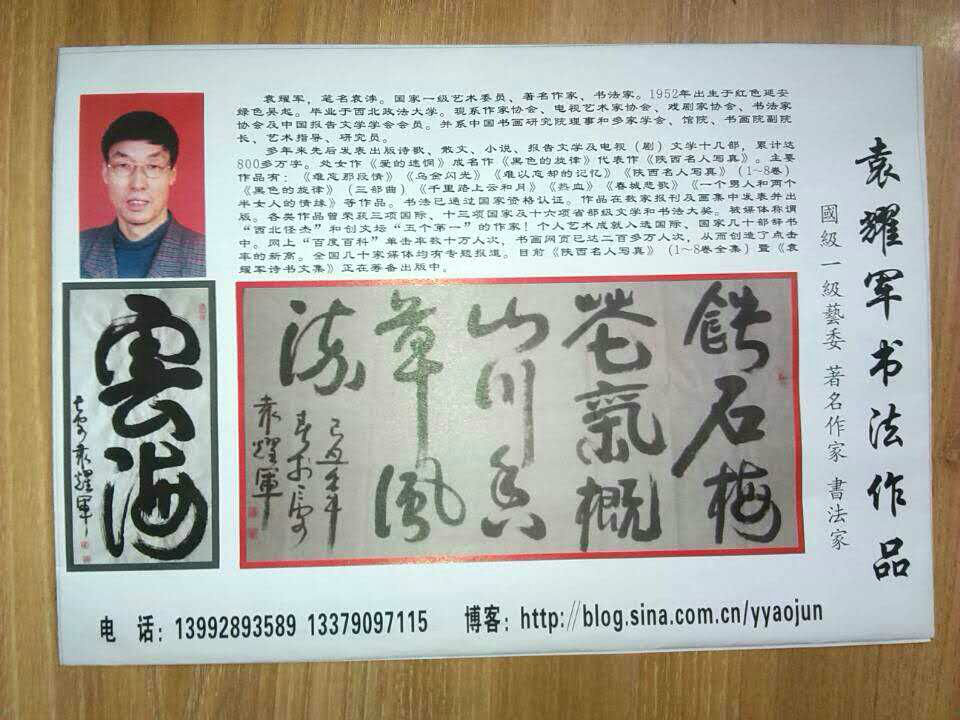 袁耀军，笔名袁涉。国家一级艺术委员、著名作家、书法家。1952年出生于红色延安
绿色吴起。毕业于西北政法大学。现系作家协会、电视艺术家协会、戏剧家协会、书法家
协会及中国报告文学学会会员。并系中国书画研究院理事和多家学会、馆院、书画院副院
长、艺术指导、研究员。
多年来先后发表出版诗歌、散文、小说、报告文学及电视（剧）文学十几部，累计达
800多万字。处女作《爱的迷惘》成名作《黑色的旋律》代表作《陕西名人写真》。主要
作品有：《难忘那段情》《乌金闪光》《难以忘却的记忆》《陕西名人写真》（1～8卷）
《黑色的旋律》（三部曲）《千里路上云和月》《热血》《春城悲歌》《一个男人和两个
半女人的情缘》等作品。书法已通过国家资格认证。作品在数家报刊及画集中发表并出
版。各类作品曾荣获三项国际、十三项国家及十六项省部级文学和书法大奖。被媒体称谓
“西北怪杰”和创文坛“五个第一”的作家！个人艺术成就入选国际、国家几十部辞书
中。网上“百度百科”单击率数十万人次，书画网页已达二百多万人次，从而创造了点击
率的新高。全国几十家媒体均有专题报道。目前《陕西名人写真》（1～8卷全集）暨《袁
耀军诗书文集》正在筹备出版中。
袁耀军书法作品
國級一級藝委 著名作家 書法家
雲海
袁耀軍
鐵石梅
花氣概
山川香
草風
流
袁耀軍
电 话：13992893589 13379097115 博客：http://blog.sina.com.cn/yyaojun